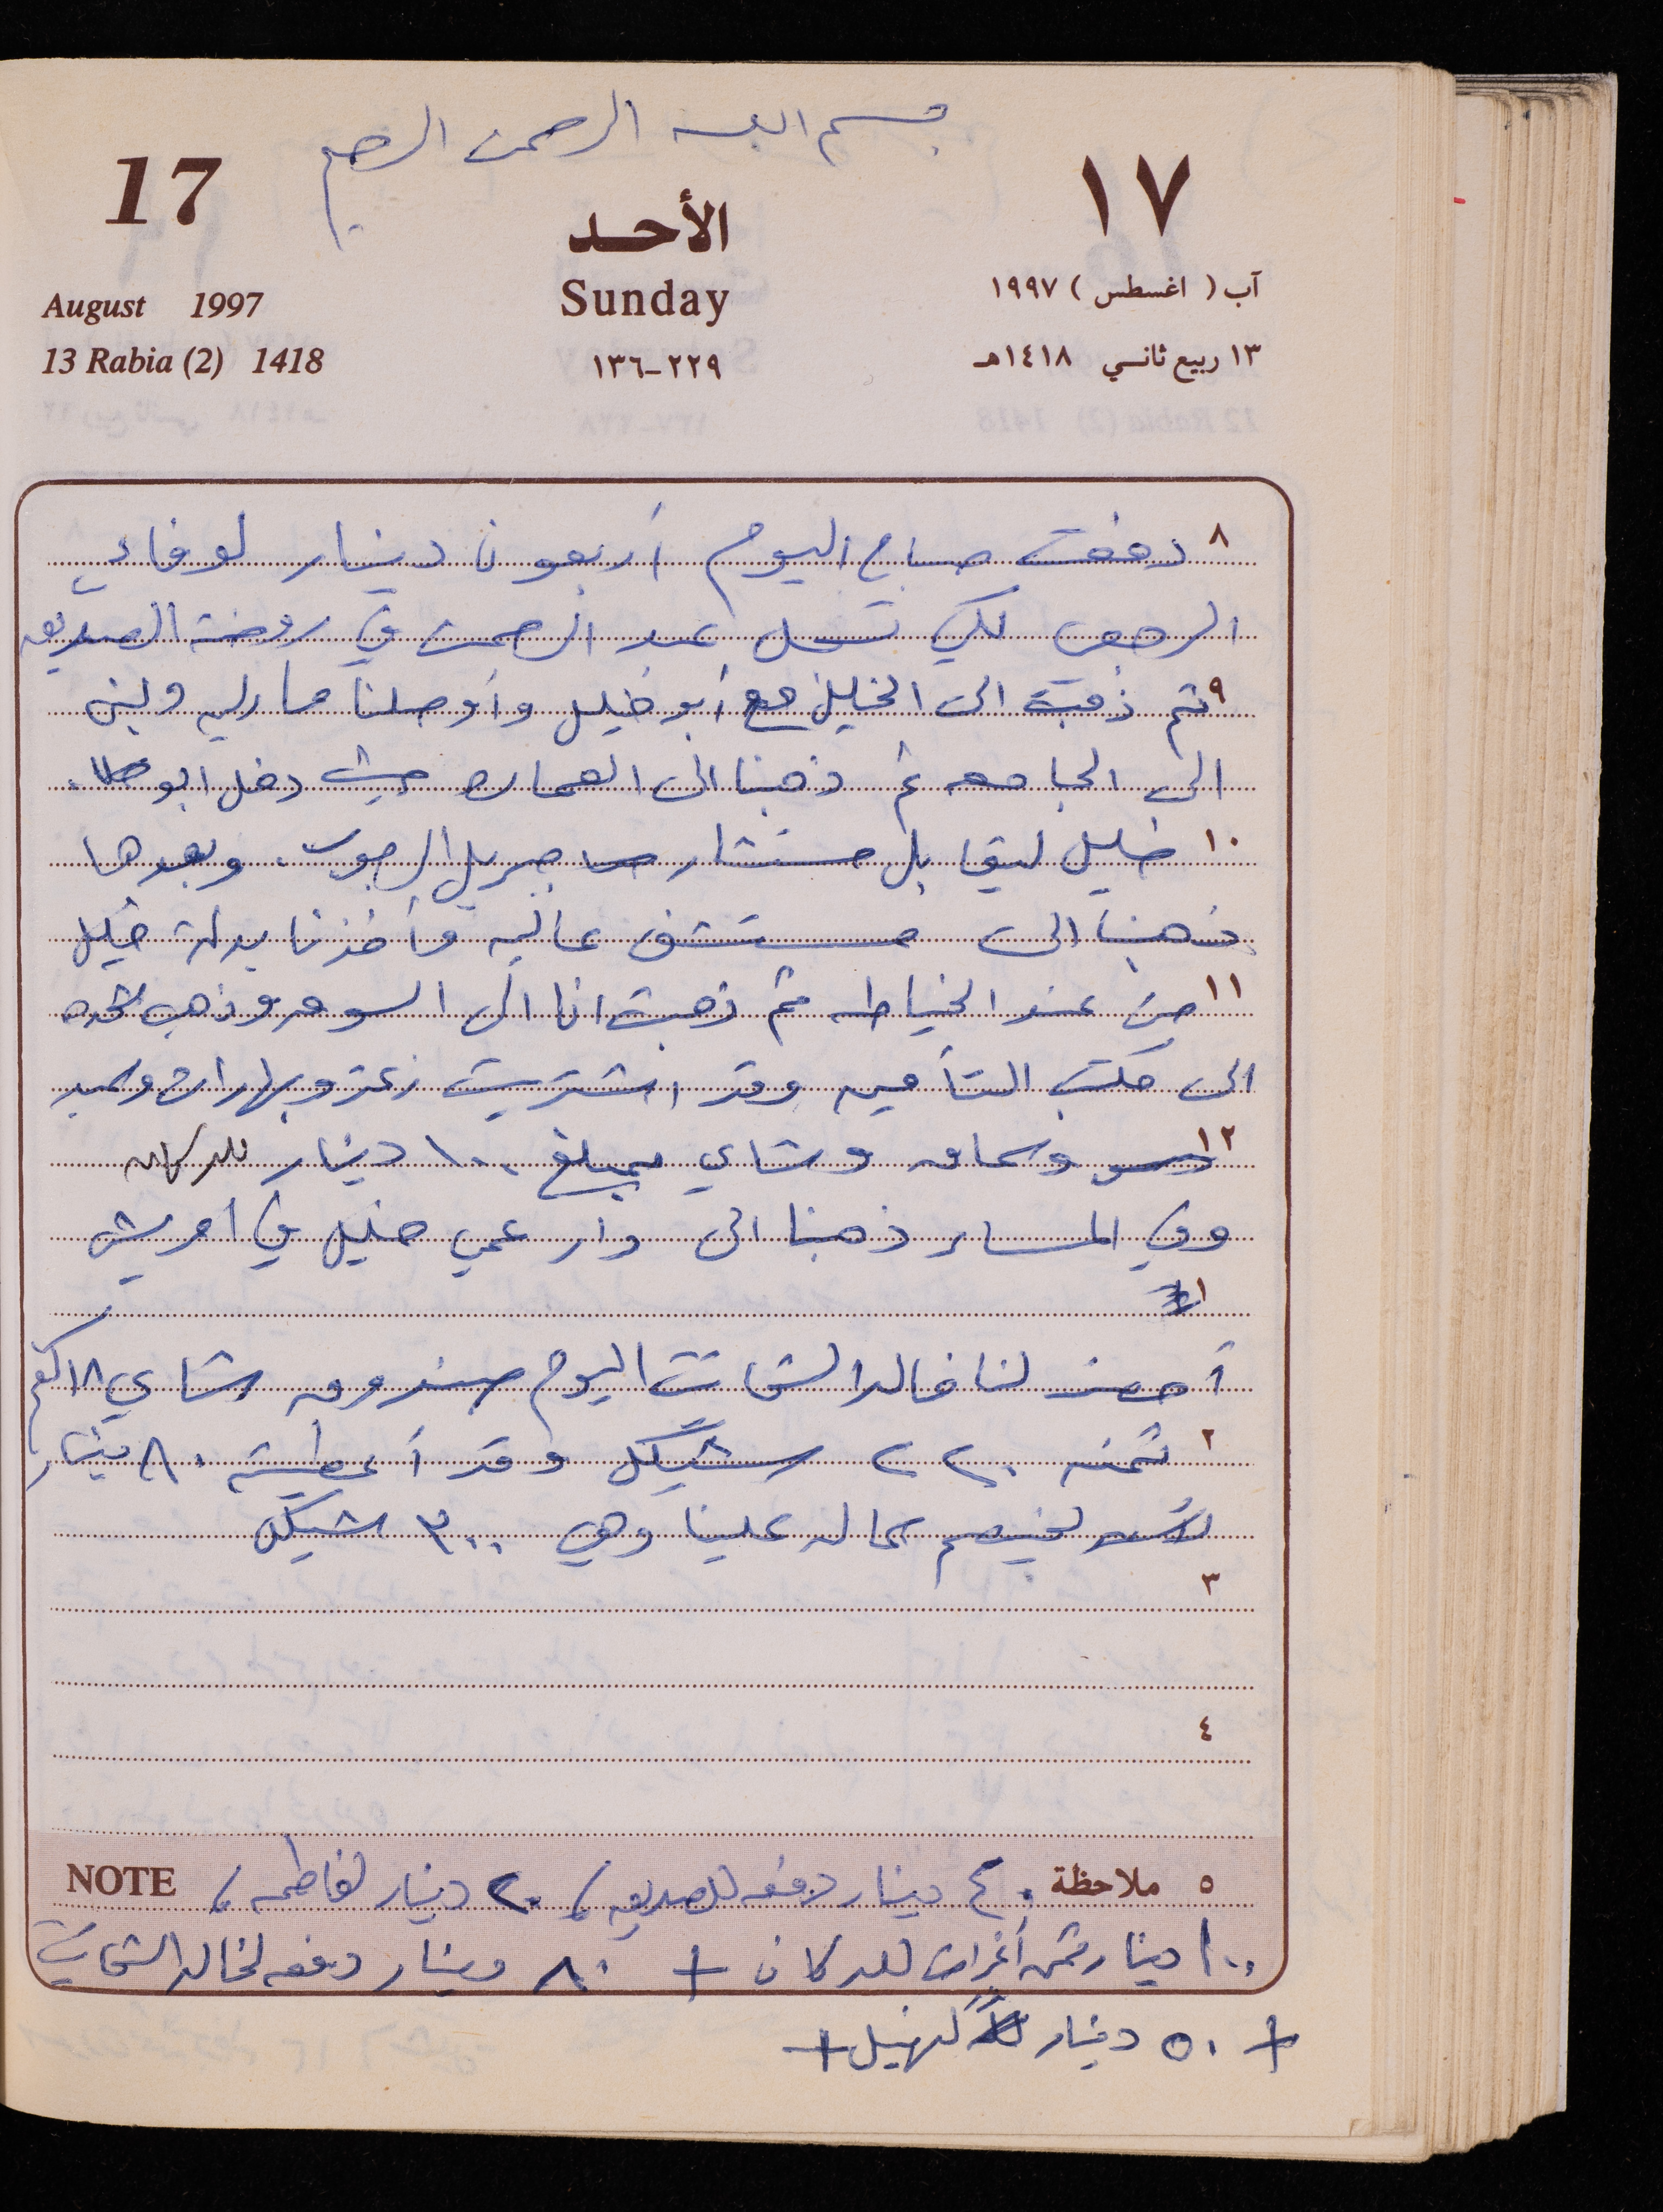 بسم الله الرحمن الرحيم
17 ١٧
الأحد
August 1997 Sunday آب ( اغسطس ) ١٩٩٧
13 Rabia (2) 1418 ٢٢٩-١٣٦ ١٣ ربيع ثاني ١٤١٨هـ
٨ دفعت صباح اليوم أربعون دينار لوفاء
الرجعي لكي تسجل عبد الرحمن في روضة الصديق
٩ ثم ذهبت الى الخليل مع أبو خليل وأوصلنا ماريه ولبنى
الى الجامعه ثم ذهبنا الى العماره حيث دخل ابو
١٠ خليل ليقابل مستشار جبريل الرجوب. وبعدها
ذهبنا الى مستشفى عاليه وأخذنا بدلة خليل
١١ من عند الخياطه ثم ذهبت انا الى السوق وذهب
الى مكتب التأمين وقد اشتريت زعتر وبهارات
١٢ وسماق وشاي بمبلغ ١٠٠ دينار للدكان
وفي المساء ذهبنا الى دار عمي خليل في امريش
١
أحضر لنا خالد الشحاتيت اليوم صندوق شاي ١٨ كغم
٢ ثمنه ٢٢٠ شيكل وقد أعطيته ٨٠ دينار
ليخصم ماله علينا وهي ٣٠٠ شيكل
٣
٤
٥ ملاحظة ٤٠ دينار دفعه للصديق، ٢٠ دينار لفاطمه، NOTE
١٠٠ دينار ثمن أغراض للدكان + ٨٠ دينار دفعه لخالد الشحاتيت
+ ٥٠ دينار لنهيل +